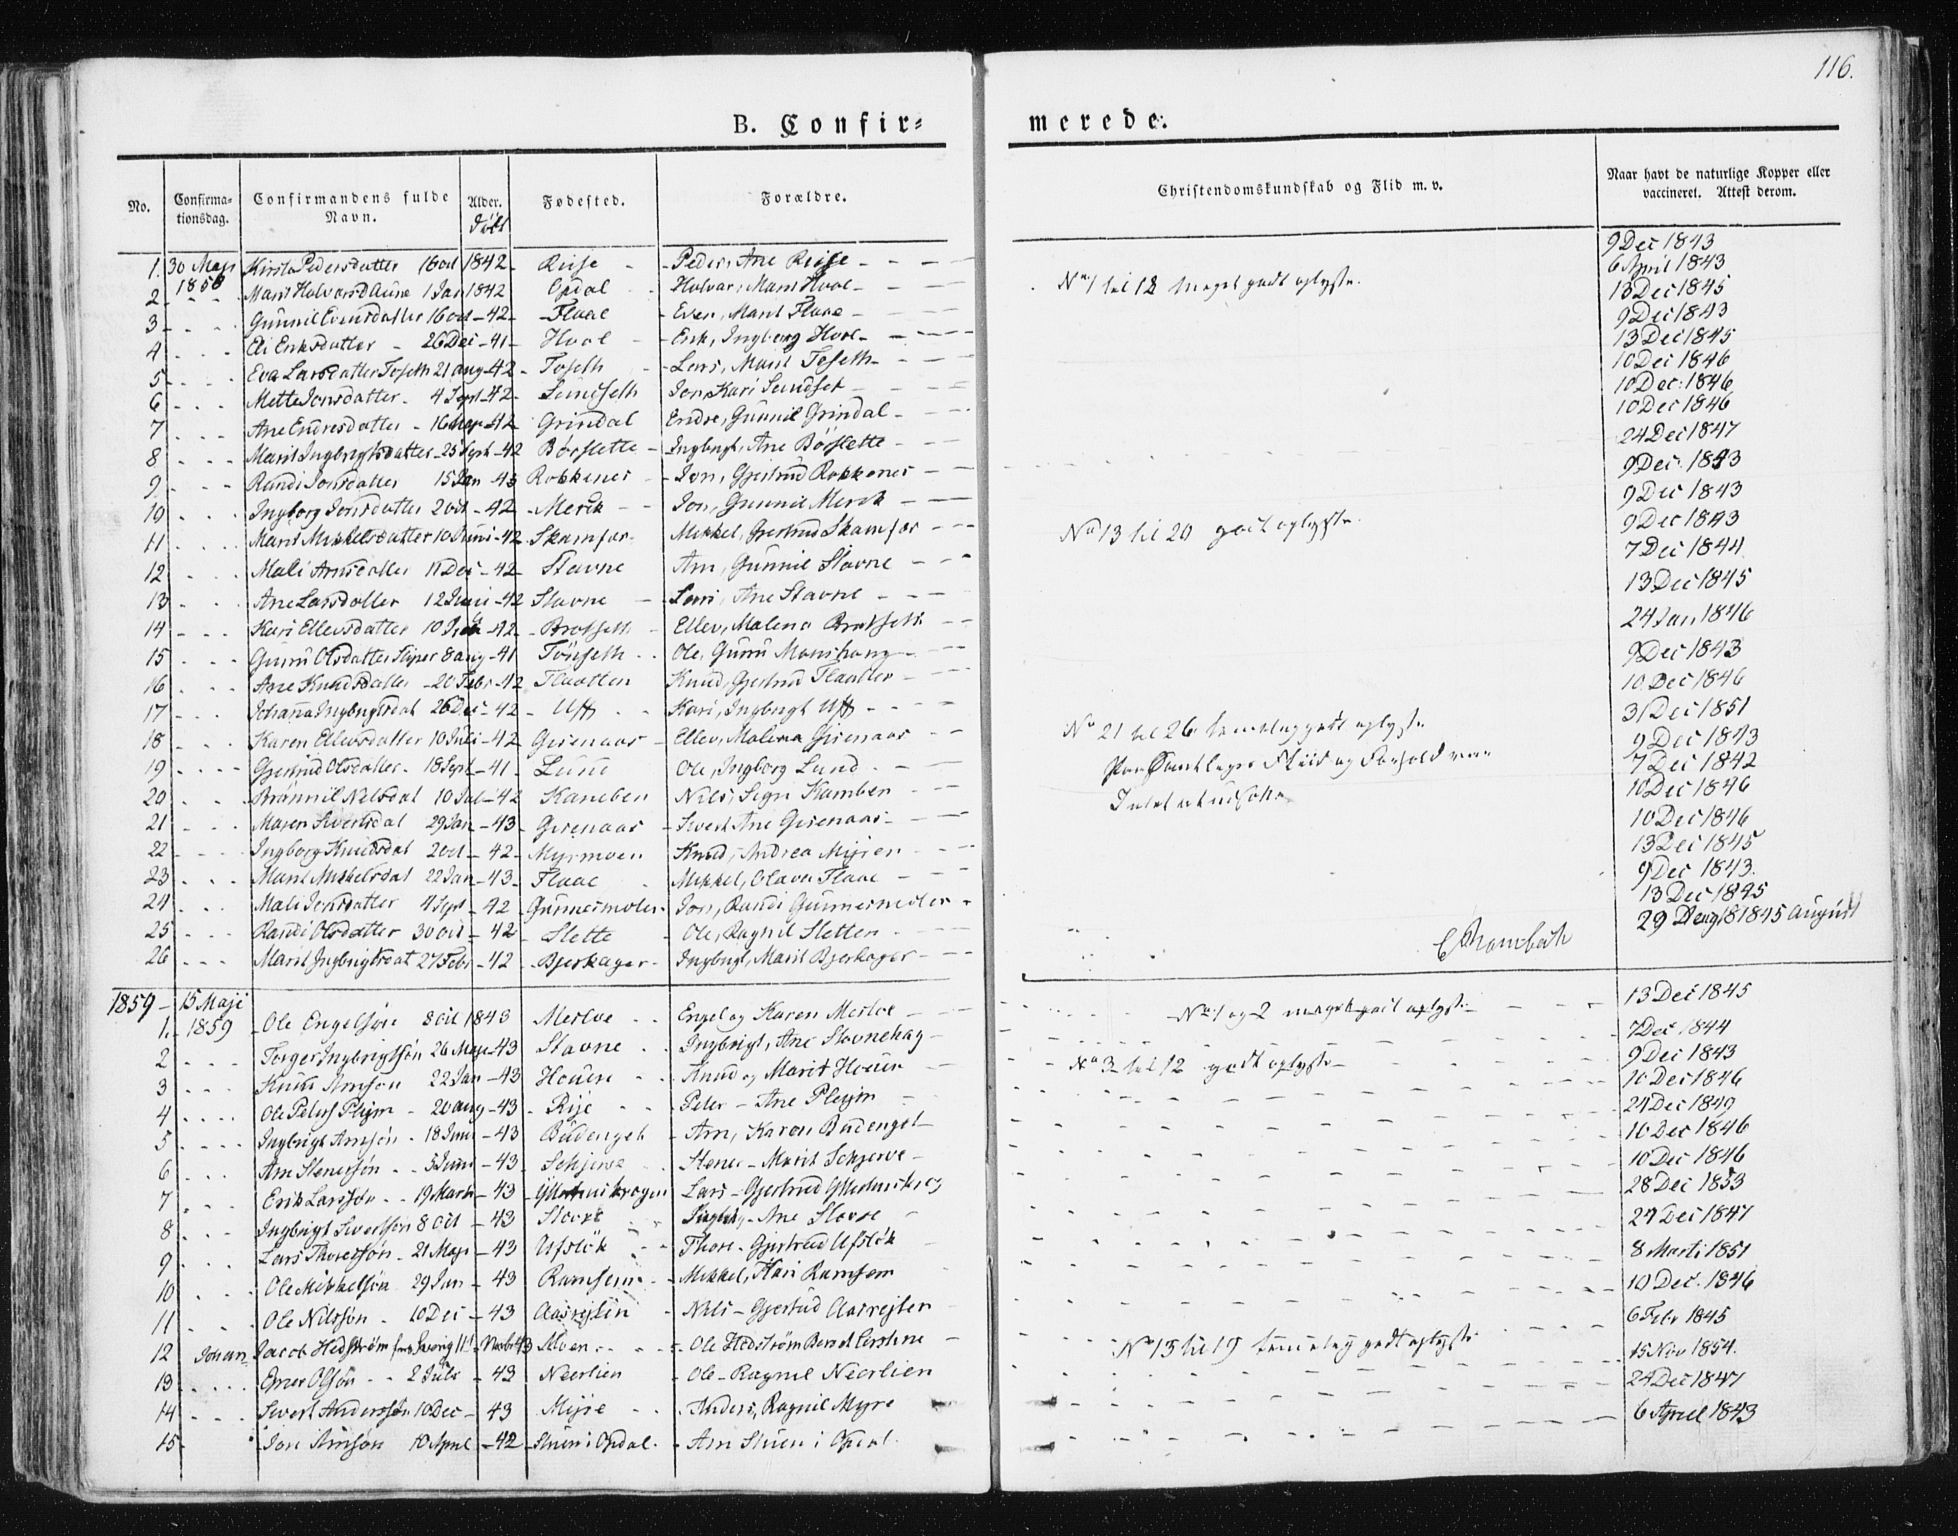 116.
B. Confir= merede.
No. Confirma-tionsdag. Confirmandens fulde Navn. Alder. Født Fødested. Forældre. Christendomskundskab og Flid m. v. Naar havt de naturlige Kopper eller vaccineret. Attest derom.
1. 30 Maji 1858 Pedersdatter 16 oct 1842 - Peder, Ane 9 Dec 1843
2 Marit Halvorsd Aune 1 Jan 1842 Opdal Halvor, Marit Hoel 6 April 1843
3 Gunnil Evensdatter 16 oct - 42 - Flaae - Even, Marit Flaae 13 Dec 1845
4 Eli Eriksdatter - 26 Dec - 41 - Hoel - Erik, Ingborg Hoel 9 Dec 1843
5 Eva Larsdatter Toseth 21 aug - 42 - Toseth - Lars, Marit Toseth 13 Dec 1845
6 Mette Jonsdatter - 4 Sept - 42 - Sundseth Jon, Kari Sundset 10 Dec 1846
7 Ane Endresdatter - 42 Grindal Endre, Gunnil Grindal 10 Dec: 1846
8 Marit Ingbrigtsdatter - 25 Sept - 42 Børslette - Ingbrigt, Ane Børslette 10 Dec 1846
9 Randi Jonsdatter 15 Jan - 43 Rokkenes - Jon, Gjertrud Rokkenes 24 Dec 1847
10 Ingborg Jonsdatter 2 oct - 42 - Merck - Jon, Gunnil Merck
11 Marit Mikkelsdatter 10 Juni - 42 - Skamfær - Mikkel, Gjertrud Skamfær 9 Dec 1843
12 Mali Arnsdatter 11 Dec - 42 - Stavne Arn, Gunnil Stavne 9 Dec 1843
13 Ane Larsdatter 12 Juni - 42 Stavne - Lars, Ane Stavne 7 Dec 1844
14 Kari Ellevsdatter - 42 - Bratseth - Ellev, Malena Bratseth 13 Dec 1845
15 Guru Olsdatter 8 aug - 41 Tønseth - Ole, Guru 24 Jan 1846
16 Ane Knudsdatter - 20 Febr - 42 Flaatten Knud, Gjertrud Flaatten 9 Dec 1843
17 Johanna Ingbrigtsdat 26 Dec - 42 - Uff - Kari, Ingbrigt Uff 10 Dec 1846
18 Karen Ellevsdatter 10 Juli - 42 Gisenaas - Ellev, Malena Gisenaas 31 Dec 1851
19 Gjertrud Olsdatter - 18 Sept - 41 - Lund Ole, Ingborg Lund 9 Dec 1843
20 Nilsdat 10 Jul - 42 Nils, Sigri 7 Dec 1842
21 Maren Sivertsdat 29 Jan - 43 - Gisenaas - Sivert Ane Gisenaas 10 Dec 1846
22 Ingborg Knudsdat 2 oct - 42 - Myrmoen Knud, Andrea Myren 10 Dec 1846
23 Marit Mikkelsdat 22 Jan - 43 - Flaae - Mikkel, Olava Flaae 13 Dec 1845
24 Mali Jonsdatter 4 Sept - 42 - Gunnesmelen - Jon, Randi Gunnesmelen 9 Dec 1843.
25 Randi Olsdatter 30 oct - 42 - Slette - Ole, Ragnil Sletten 13 Dec 1845
26 Marit Ingbrigtsdat 27 Febr - 42 - Bjerkager - Ingbrigt, Marit Bjerkager 29 1845 August
No 1 til 12 meget godt oplyste.
No 13 til 20 godt oplyste.
No 21 til 26 temmelig godt oplyste
1859 - 15 Maji
1. - 1859 Ole Engelsøn 8 oct 1843 Mesloe Engel og Karen Mesloe No 1 og 2 meget godt oplyst 13 Dec 1845
2 Torger Ingbrigtsøn 26 Maji - 43 - Stavne Ingbrigt, Ane Stavnehag 7 Dec 1844
3 Knud Arnsøn 22 Jan - 43 Houen Knud og Marit Houen No 3 til 12 godt oplyste 9 Dec 1843
4 Ole Peters Plejm - 20 aug - 43 - Rise Peter - Ane Plejm 10 Dec 1846
5 Ingbrigt Arnsøn - 18 Juni - 43 Budenget - Arn, Karen Budenget 24 Dec 1849
6 Arn Stenersøn - 5 Juni - 43 - Schjerve Stener - Marit Schjerve 10 Dec 1846
7 Erik Larssøn - 19 Marti - 43 - Lars - Gjertrud 10 Dec 1846
8 Ingbrigt Sivertsøn 8 oct - 43 - Ane 28 Dec 1853
9 Lars Thoresøn - 21 Maji - 43 Ufsløk - Thore - Gjertrud Ufsløk 27 Dec 1847
10 Ole Mikkelsøn 29 Jan - 43 Ramsem - Mikkel, Kari Ramsem 8 Marti 1851
11 Ole Nilssøn - 10 Dec - 43 Aasrejten - Nils - Gjertrud Aasrejten 10 Dec. 1846
12 Johan Jacob Hedstrøm - Moen - Ole Hedstrøm 6 Febr 1845
13 Olsøn - 2 Juli - 43 Neerlien - Ole - Ragnil Neerlien No 13 til 19 temmelig godt oplyste 15 Nov 1854.
14 Sivert Anderssøn 10 Dec - 43 Myre - Anders, Ragnil Myre 24 Dec 1847
15 Jon Arnsøn 10 April - 42 - Stuen i Opdal - Arn Stuen i Opdal. 6 April 1843